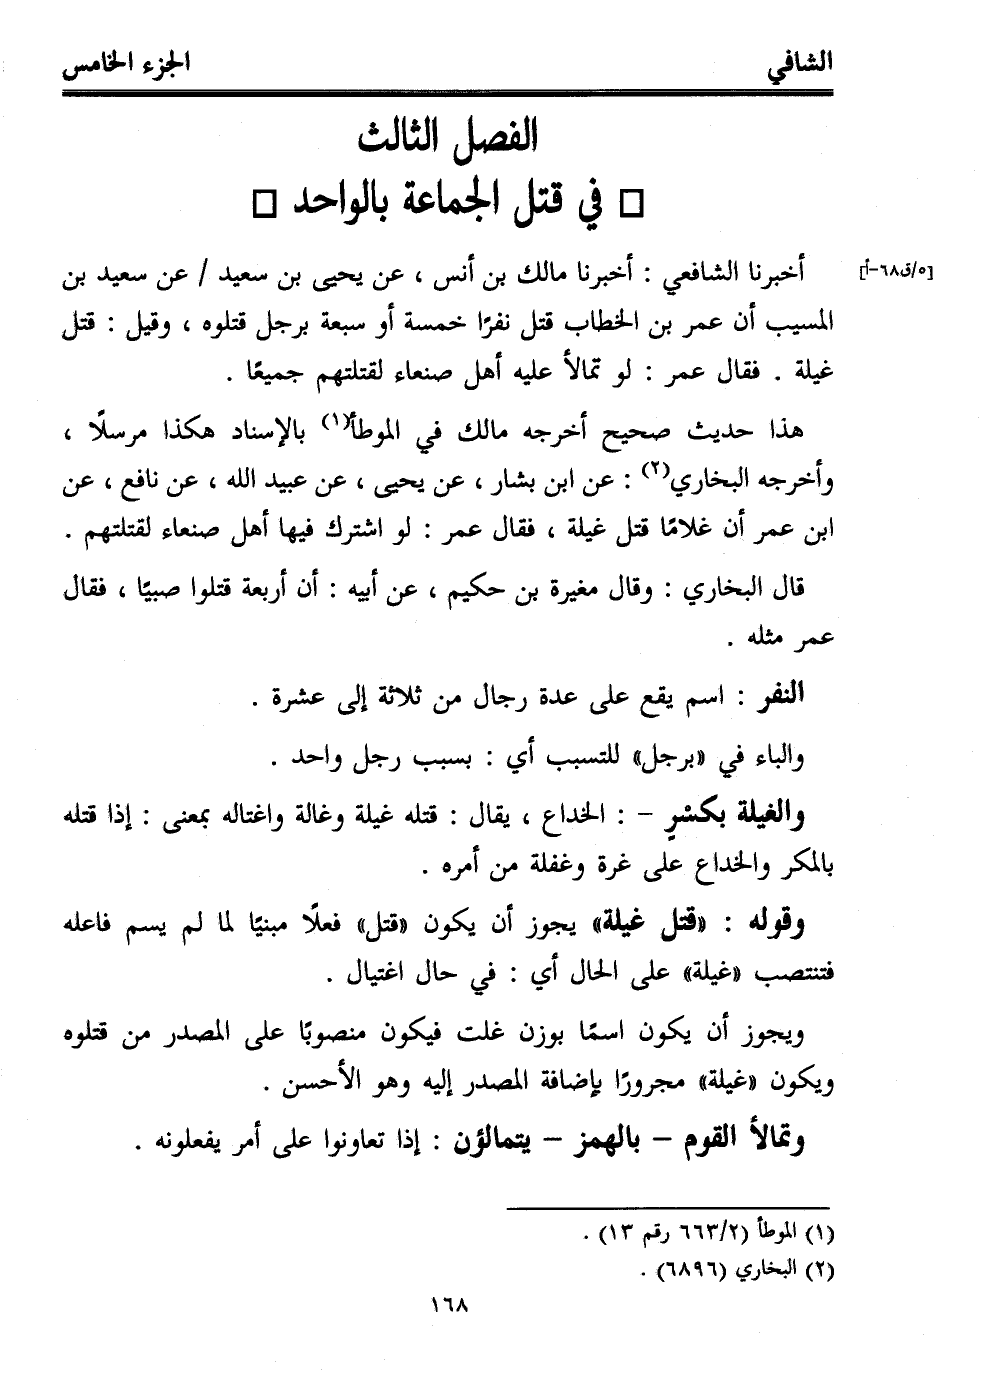 الشافي الجزء الخامس
الفصل الثالث
□ في قتل الجماعة بالواحد □
[٥/ق٦٨-أ] أخبرنا الشافعي : أخبرنا مالك بن أنس ، عن يحيى بن سعيد / عن سعيد بن
المسيب أن عمر بن الخطاب قتل نفرًا خمسة أو سبعة برجل قتلوه ، وقيل : قتل
غيلة . فقال عمر : لو تمالأ عليه أهل صنعاء لقتلتهم جميعًا .
هذا حديث صحيح أخرجه مالك في الموطأ(١) بالإسناد هكذا مرسلًا ،
وأخرجه البخاري(٢) : عن ابن بشار ، عن يحيى ، عن عبيد الله ، عن نافع ، عن
ابن عمر أن غلامًا قتل غيلة ، فقال عمر : لو اشترك فيها أهل صنعاء لقتلتهم .
قال البخاري : وقال مغيرة بن حكيم ، عن أبيه : أن أربعة قتلوا صبيًا ، فقال
عمر مثله .
النفر : اسم يقع على عدة رجال من ثلاثة إلى عشرة .
والباء في «برجل» للتسبب أي : بسبب رجل واحد .
والغيلة بكسْرٍ - : الخداع ، يقال : قتله غيلة وغالة واغتاله بمعنى : إذا قتله
بالمكر والخداع على غرة وغفلة من أمره .
وقوله : «قتل غيلة» يجوز أن يكون «قتل» فعلًا مبنيًا لما لم يسم فاعله
فتنتصب «غيلة» على الحال أي : في حال اغتيال .
ويجوز أن يكون اسمًا بوزن غلت فيكون منصوبًا على المصدر من قتلوه
ويكون «غيلة» مجرورًا بإضافة المصدر إليه وهو الأحسن .
وتمالأ القوم - بالهمز - يتمالؤن : إذا تعاونوا على أمر يفعلونه .
(١) الموطأ (٦٦٣/٢ رقم ١٣) .
(٢) البخاري (٦٨٩٦) .
١٦٨